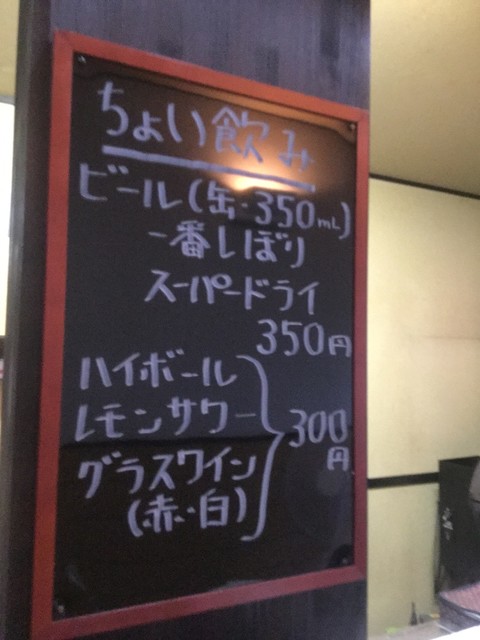 ちょい飲み
ビール(缶・350mL)
一番しぼり
スーパードライ
350円
ハイボール
レモンサワー
グラスワイン
(赤・白)
300
円